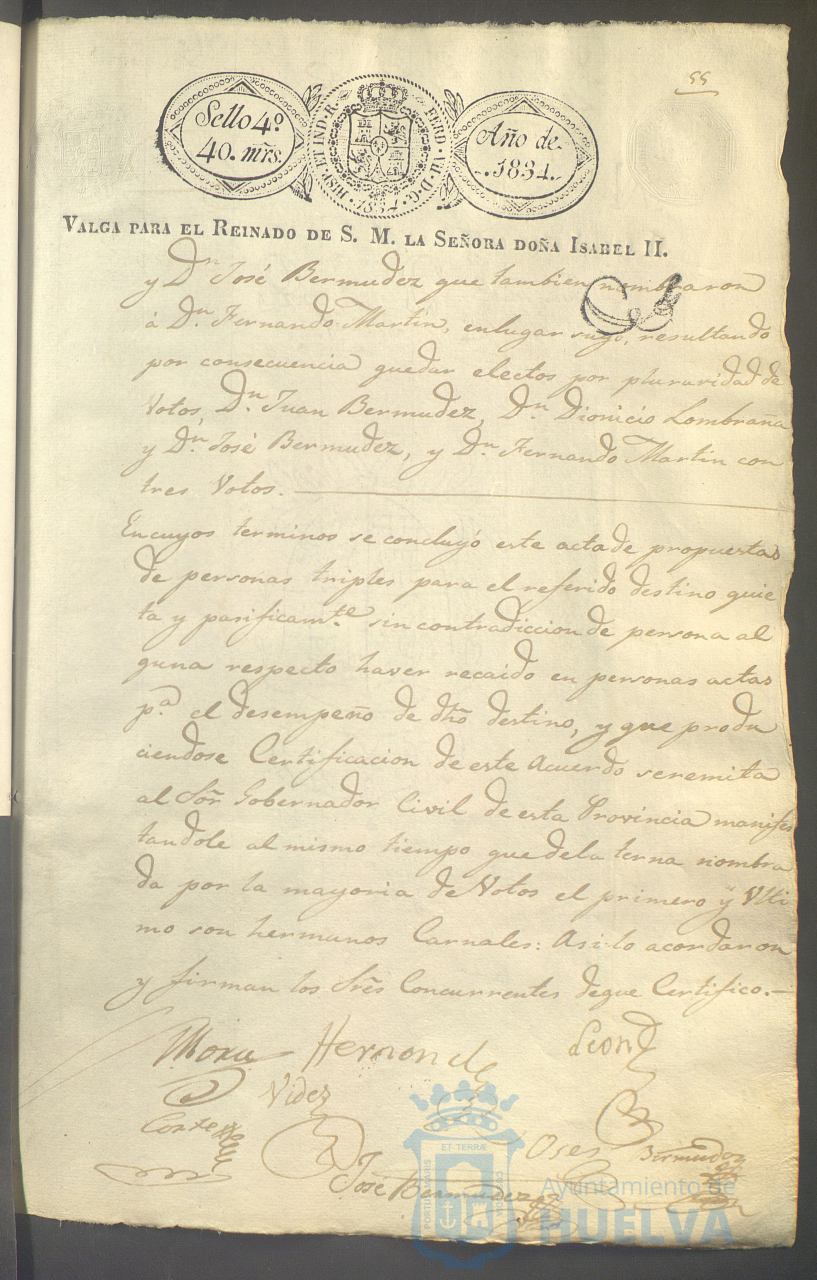 55
Sello 4º
40. mrs.
HISP. ET IND. R. FERD. VII. D. G.
1834
Año de
1834.
VALGA PARA EL REINADO DE S. M. LA SEÑORA DOÑA ISABEL II.
y Dn José Bermudez que tambien nombraron
á Dn. Fernando Martin, en lugar suyo, resultando
por consecuencia quedar electos por pluraridad de
Votos, Dn. Juan Bermudez, Dn. Dionicio Lombraña
y Dn. José Bermudez, y Dn. Fernando Martin con
tres Votos.
En cuyos terminos se concluyó este acta de propuestas
de personas triples para el referido destino quie
ta y pasificamte. sin contradiccion de persona al
guna respecto haver recaido en personas actas
pa. el desempeño de dho destino, y que produ
ciendose Certificacion de este Acuerdo se remita
al Sor. Gobernador Civil de esta Provincia manifes
tandole al mismo tiempo que de la terna nombra
da por la mayoria de Votos el primero y Ulti
mo son hermanos Carnales: Asi lo acordaron
y firman los Sres Concurrentes de que Certifico.
Mora Hernandz Leon
Videz
Bermudez
José Bermudez
ET TERRÆ
Ayuntamiento de
HUELVA